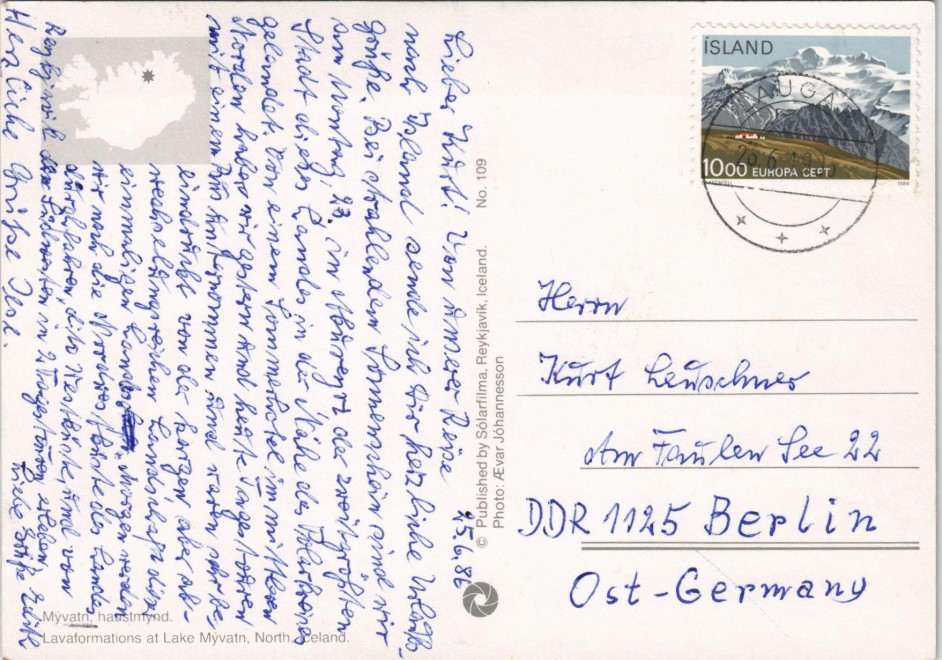 25.6.86
Lieber Kurt! Von unserer Reise
nach Island sende ich Dir herzliche Urlaubs-
grüße. Bei strahlendem Sonnenschein sind wir
am Montag, 23. in Akureyri der zweitgrößten
Stadt dieses Landes in der Nähe des Polarkreises
gelandet. Von einem Sommerhotel im mittleren
Norden haben wir gestern und heute Tagestouren
mit einem Bus unternommen und waren sehr be-
eindruckt von der kargen aber ab-
wechslungsreichen Landschaft dieses
einmaligen Landes. Morgen werden
wir noch die Nordostküste des Landes
durchfahren, dito Westküste, und von
Reykjavik den Südwesten in 2 Tagestouren erleben
Herzliche Grüße Ilse.
Viele Grüße
ÍSLAND
LAUGA
26.6.19
10oo EUROPA CEPT
1986
Herrn
Kurt Leuschner
Am Faulen See 22
DDR 1125 Berlin
Ost-Germany
© Published by Sólarfilma, Reykjavik, Iceland. No. 109
Photo: Ævar Jóhannesson
Mývatn, haustmynd.
Lavaformations at Lake Mývatn, North Iceland.